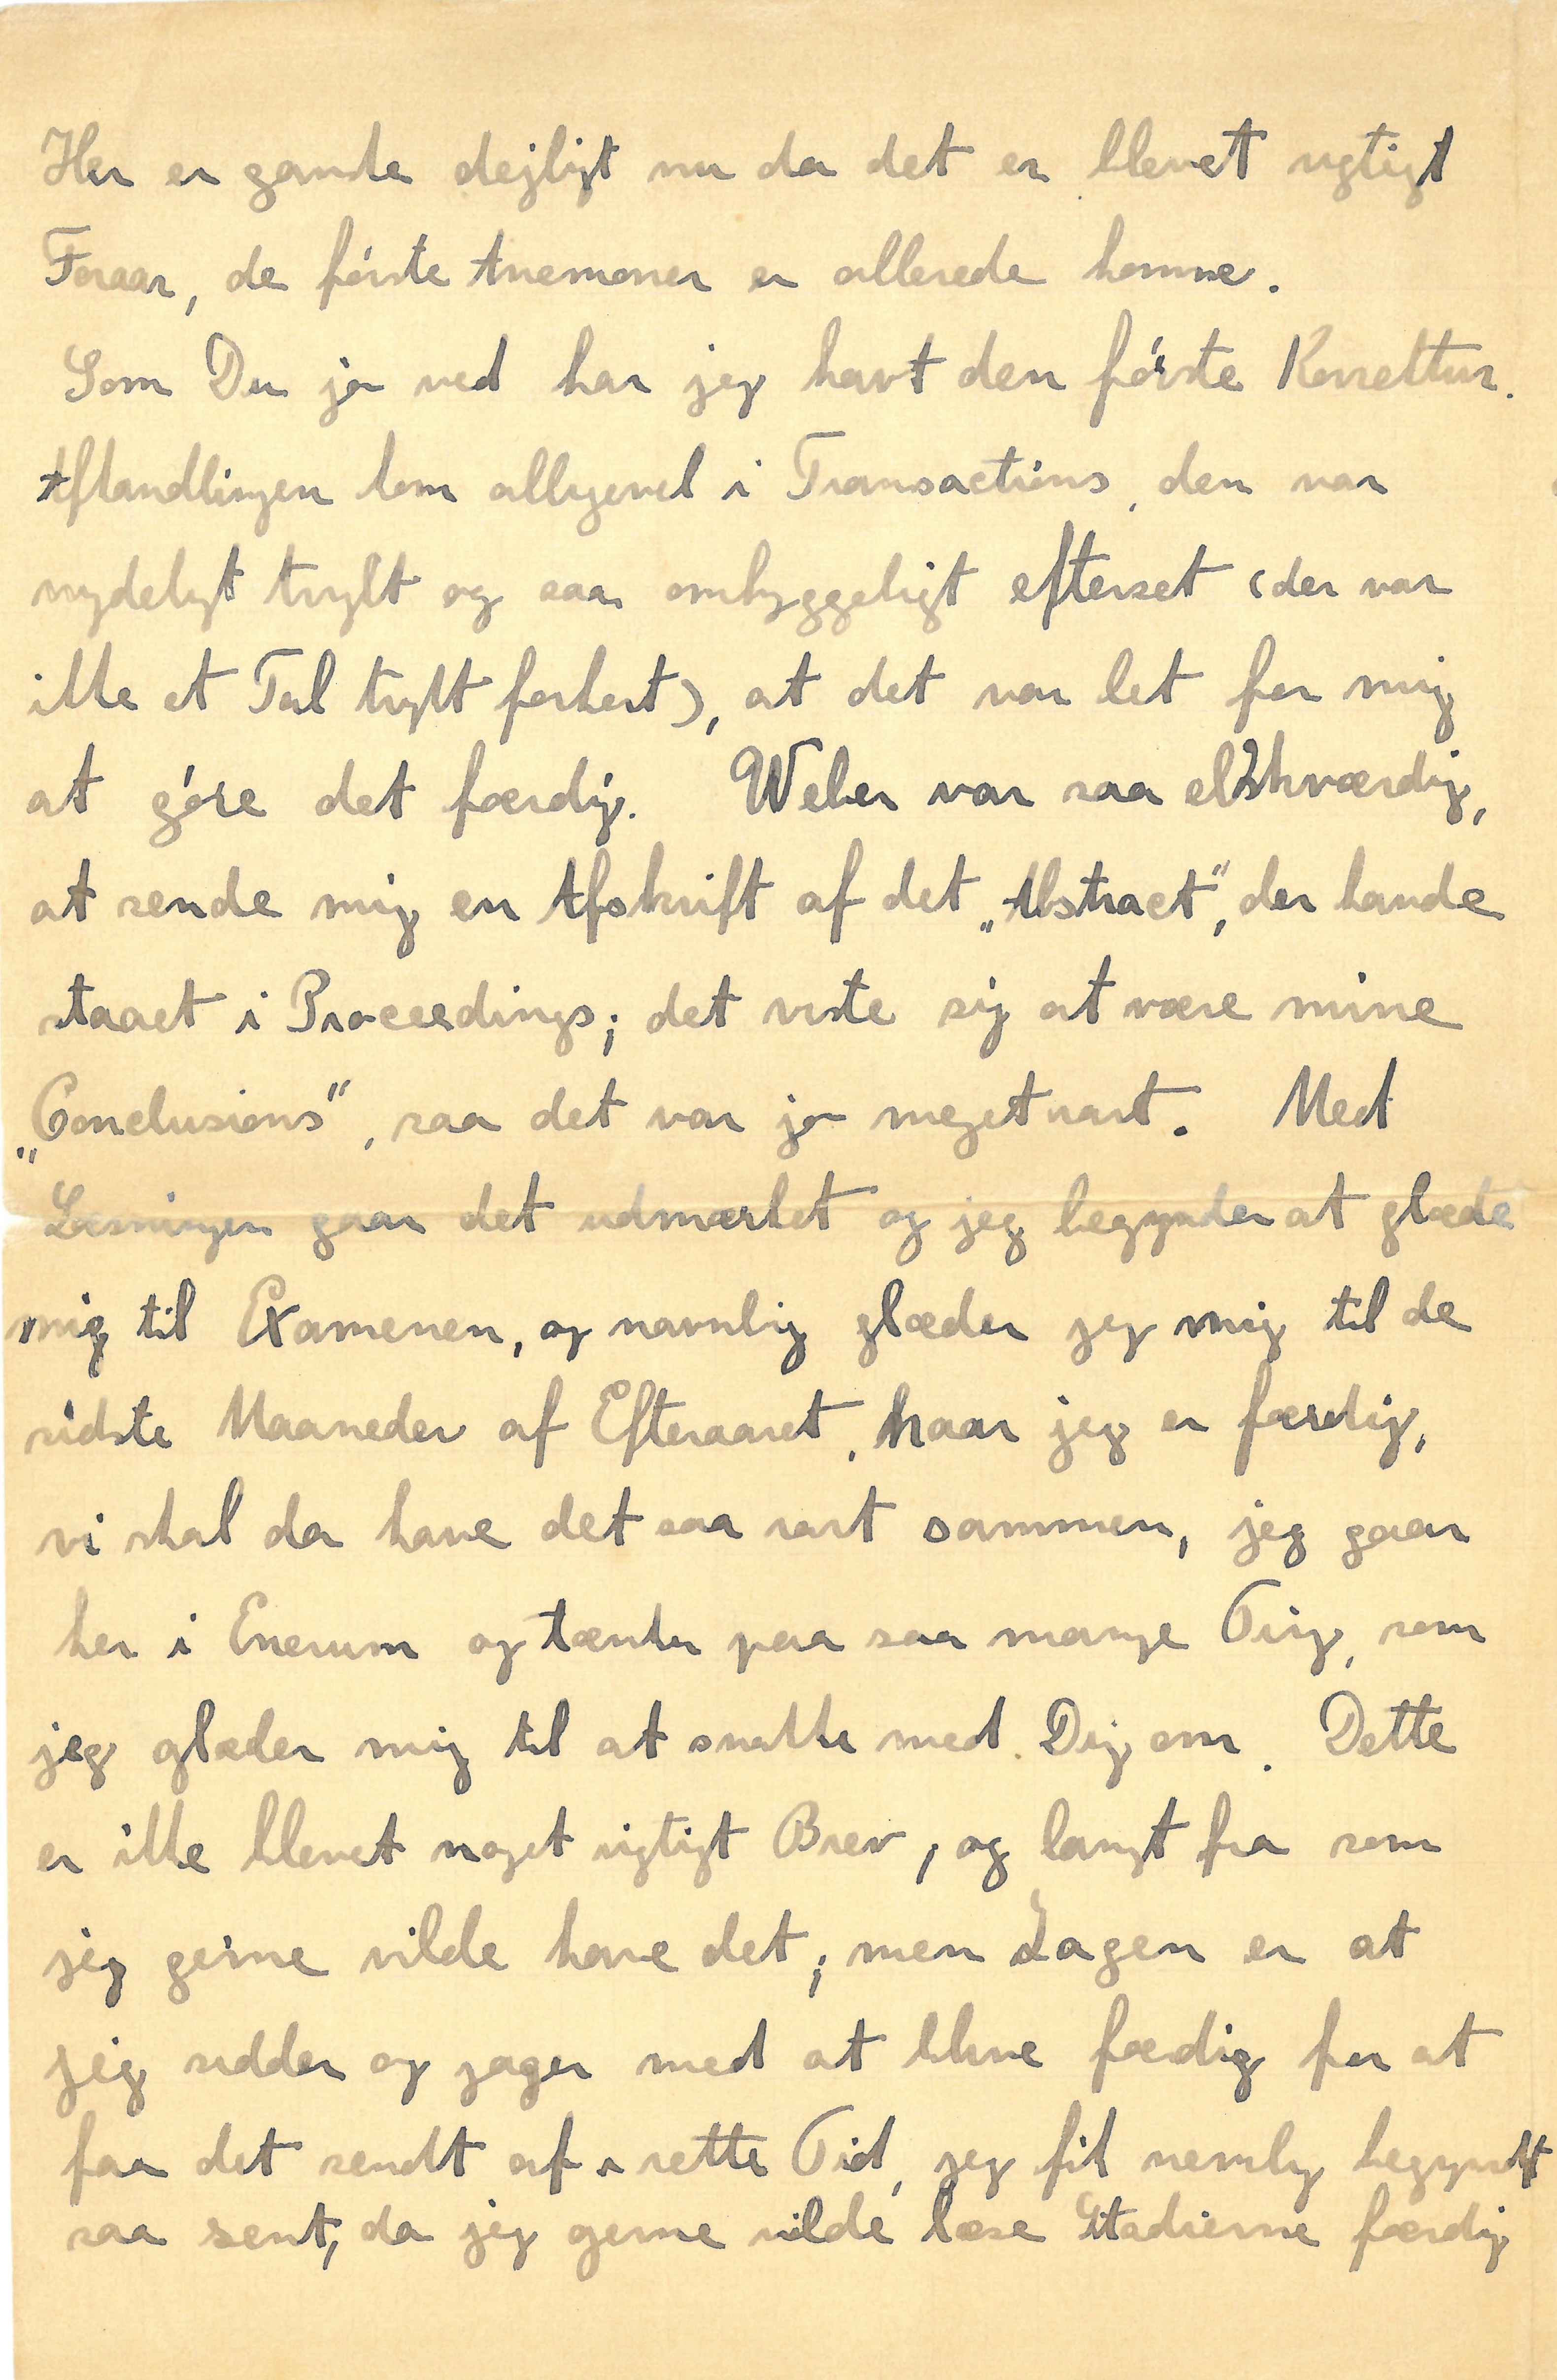 Her er ganske dejligt nu da det er blevet rigtigt
Foraar, de første Anemoner er allerede komne.
Som Du jo ved har jeg havt den første Korrektur.
Afhandlingen kom alligevel i Transactions, den var
nydeligt trykt og saa omhyggeligt efterset (der var
ikke et Tal trykt forkert), at det var let for mig
at gøre det færdig. Weber var saa elskværdig,
at sende mig en Afskrift af det „Abstract“, der havde
staaet i Proceedings; det viste sig at være mine
„Conclusions“, saa det var jo meget rart. Med
Læsningen gaar det udmærket og jeg begynder at glæde
mig til Examenen, og navnlig glæder jeg mig til de
sidste Maaneder af Efteraaret, naar jeg er færdig,
vi skal da have det saa rart sammen, jeg gaar
her i Enerum og tænker paa saa mange Ting, som
jeg glæder mig til at snakke med Dig om. Dette
er ikke blevet noget rigtigt Brev, og langt fra som
jeg gerne vilde have det; men Sagen er at
jeg sidder og jager med at blive fædig for at
faa det sendt af i rette Tid, jeg fik nemlig begyndt
saa sent, da jeg gerne vilde læse Stadierne færdig